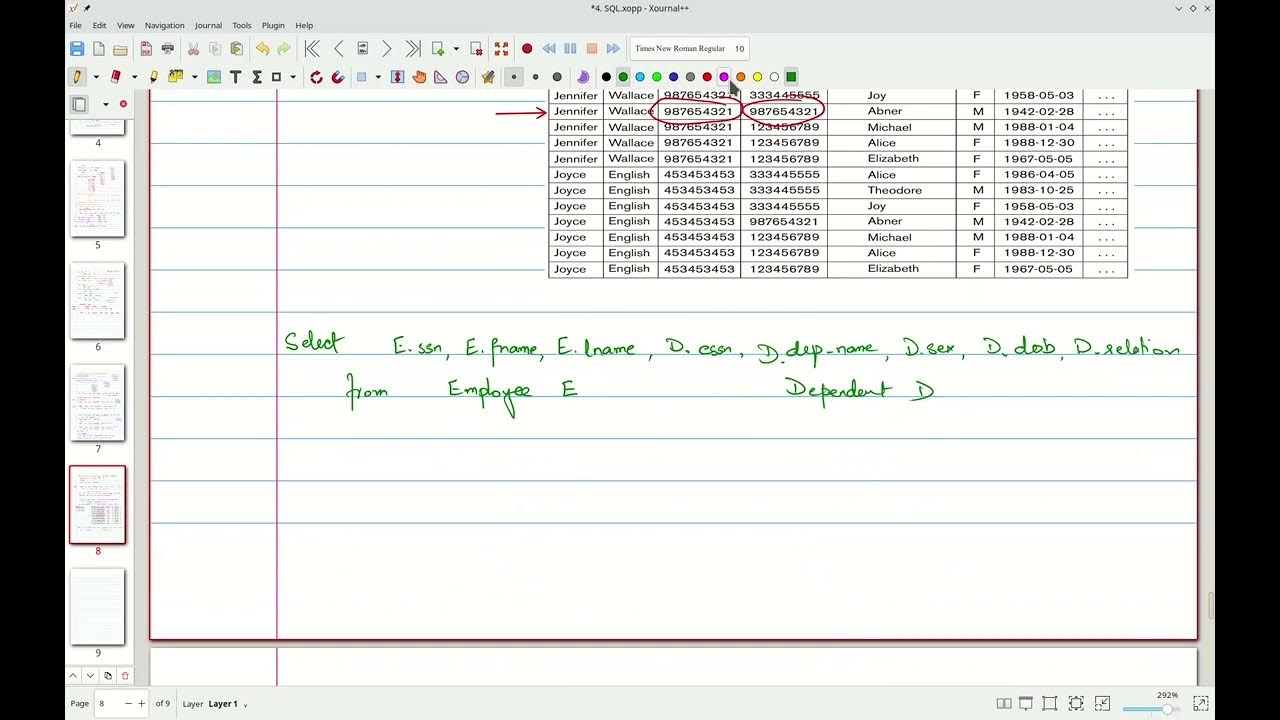 *4. SQL.xopp - Xournal++
File Edit View Navigation Journal Tools Plugin Help
Times New Roman Regular 10
Jennifer Wallace 987654321 333445555 Joy F 1958-05-03 ...
Jennifer Wallace 987654321 987654321 Abner M 1942-02-28 ...
Jennifer Wallace 987654321 123456789 Michael M 1988-01-04 ...
Jennifer Wallace 987654321 123456789 Alice F 1988-12-30 ...
Jennifer Wallace 987654321 123456789 Elizabeth F 1967-05-05 ...
Joyce English 453453453 333445555 Alice F 1986-04-05 ...
Joyce English 453453453 333445555 Theodore M 1983-10-25 ...
Joyce English 453453453 333445555 Joy F 1958-05-03 ...
Joyce English 453453453 987654321 Abner M 1942-02-28 ...
Joyce English 453453453 123456789 Michael M 1988-01-04 ...
Joyce English 453453453 123456789 Alice F 1988-12-30 ...
Joyce English 453453453 123456789 Elizabeth F 1967-05-05 ...
Select E.ssn, E.fname, E.lname, D.essn, D.dep_name, D.sex, D.dob, D.relation
from Employee E Dependent D
4
5
6
7
8
9
Page 8 of 9 Layer Layer 1 292%